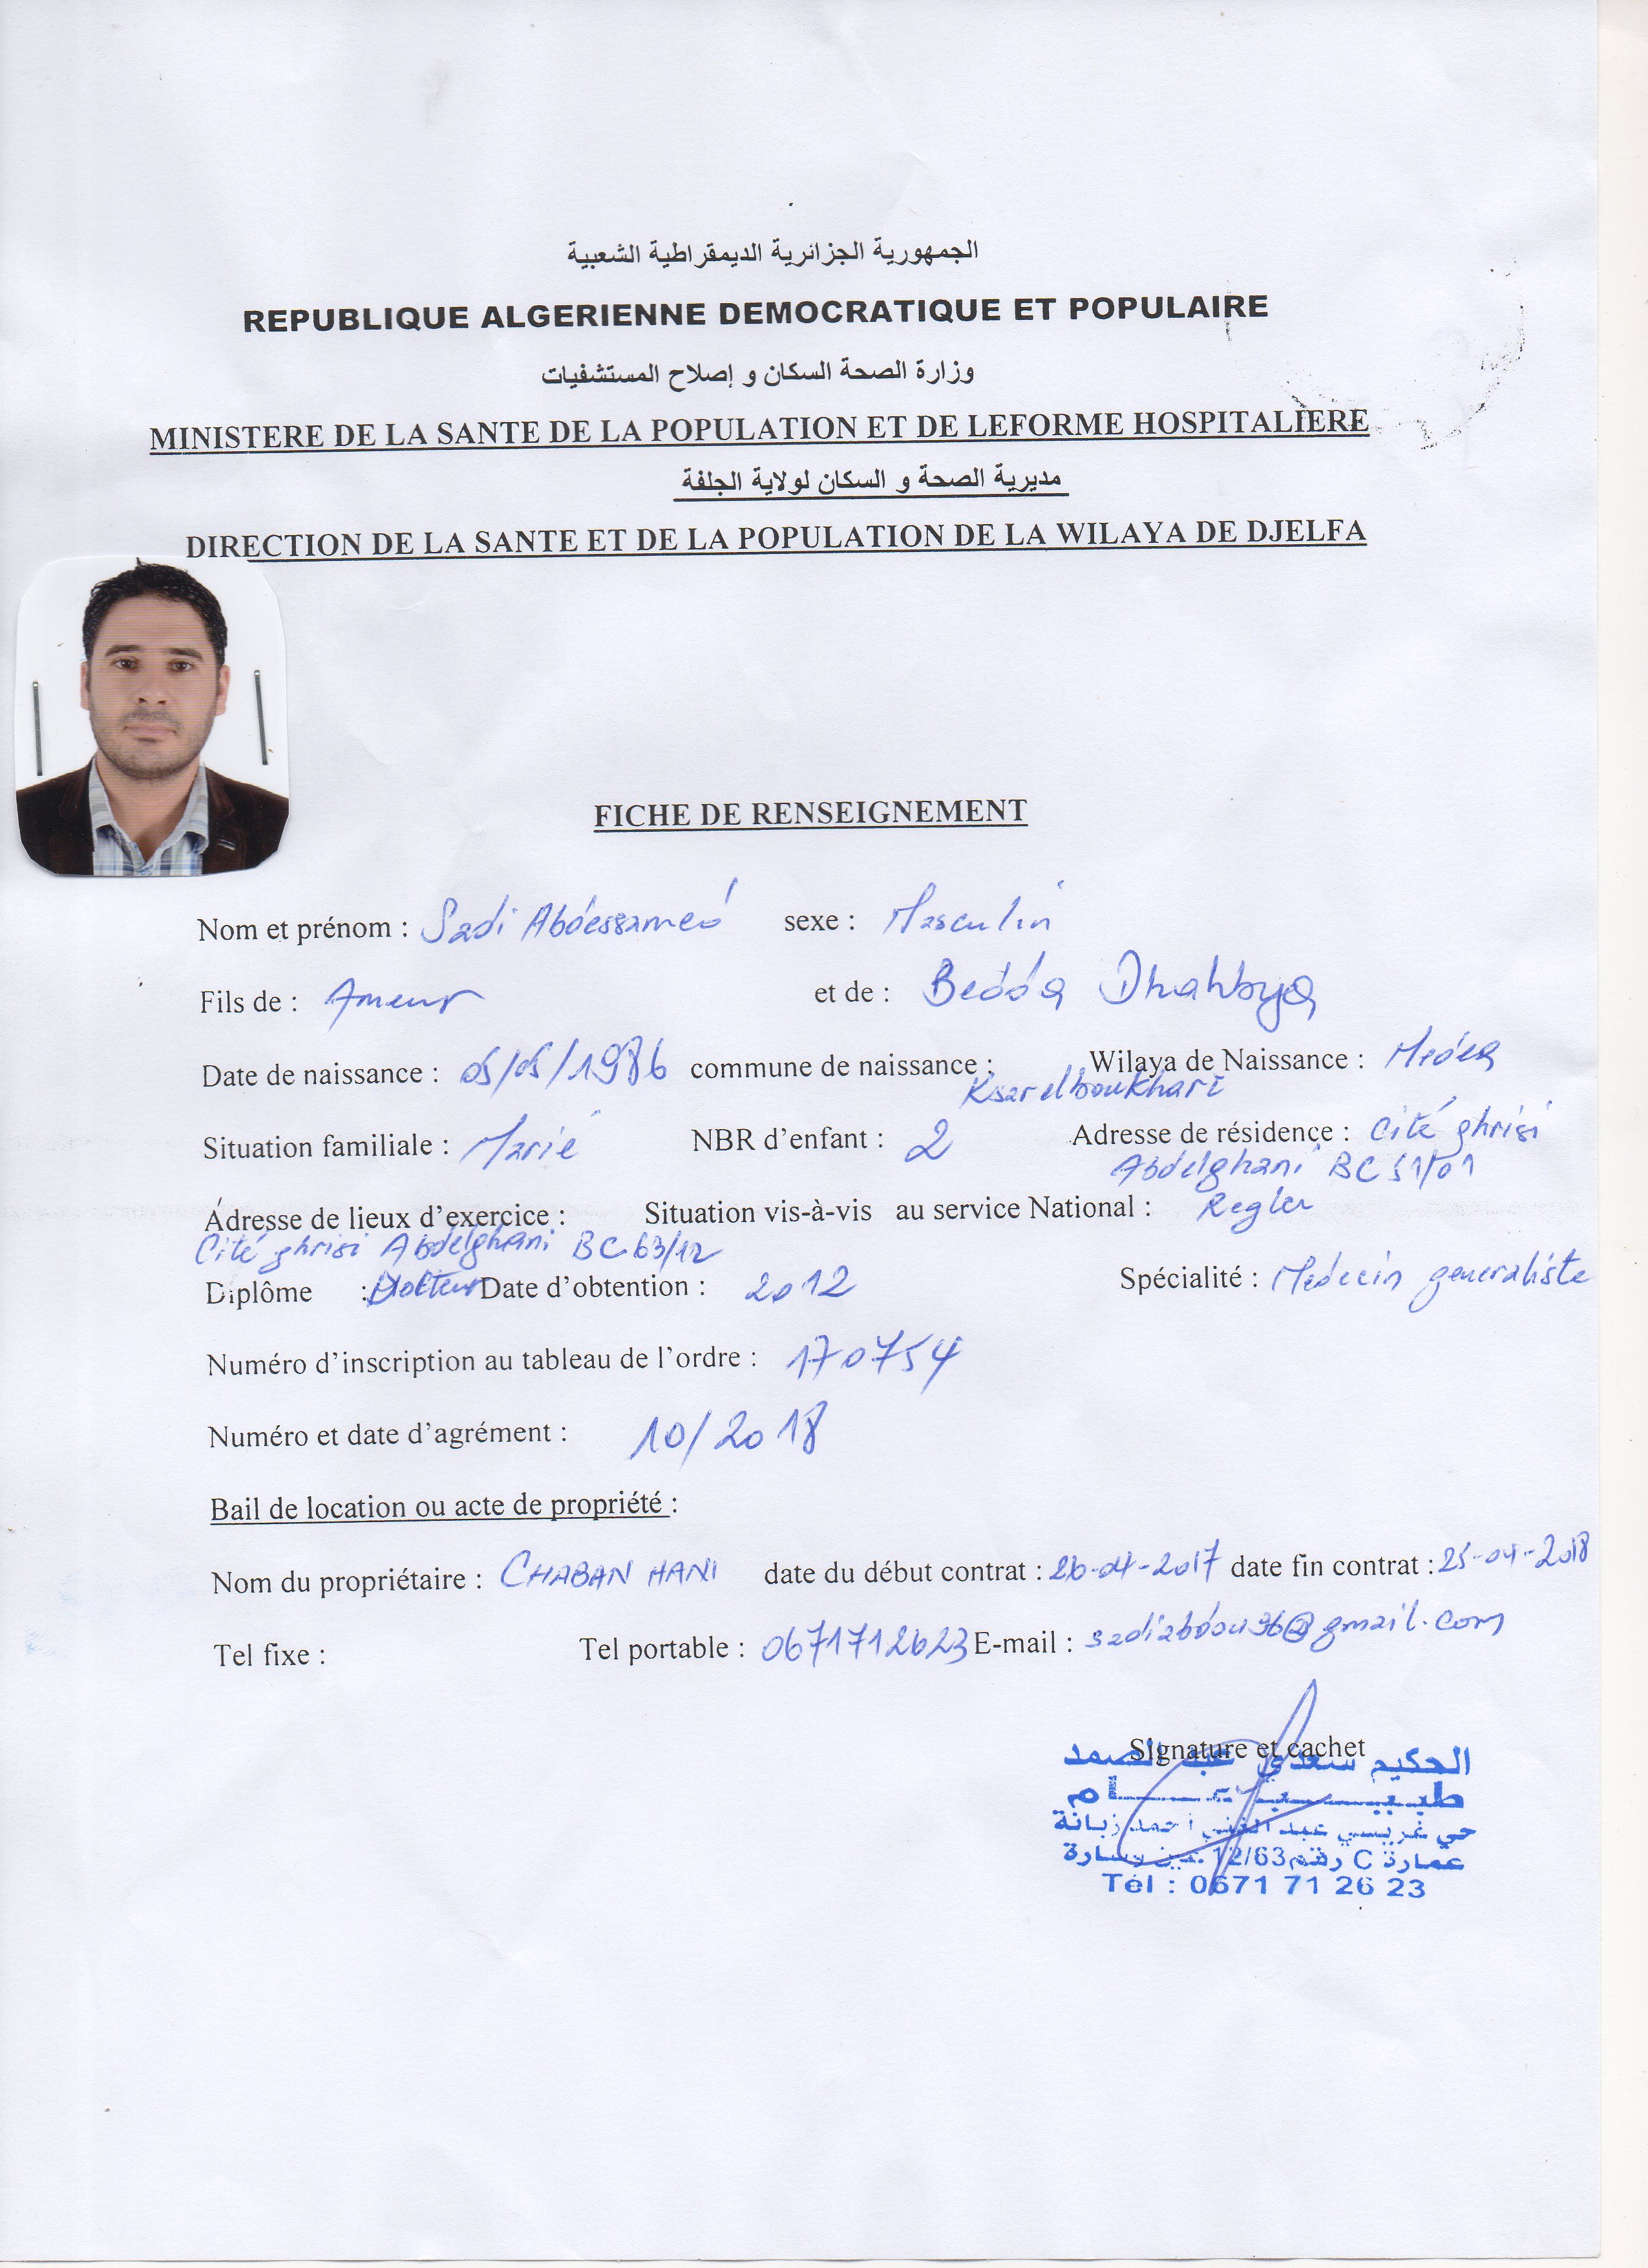 الجمهورية الجزائرية الديمقراطية الشعبية
REPUBLIQUE ALGERIENNE DEMOCRATIQUE ET POPULAIRE
وزارة الصحة السكان و إصلاح المستشفيات
MINISTERE DE LA SANTE DE LA POPULATION ET DE LEFORME HOSPITALIERE
مديرية الصحة و السكان لولاية الجلفة
DIRECTION DE LA SANTE ET DE LA POPULATION DE LA WILAYA DE DJELFA
FICHE DE RENSEIGNEMENT
Nom et prénom : Sadi Abdessamed sexe : Masculin
Fils de : Ameur et de : Bedda Dhahbya
Date de naissance : 05/05/1986 commune de naissance : Wilaya de Naissance : Medea
Ksar elboukhari
Situation familiale : Marié NBR d'enfant : 2 Adresse de résidence : Cité ghrisi
Abdelghani BC 51/01
Adresse de lieux d'exercice : Situation vis-à-vis au service National : Regler
Cité ghrisi Abdelghani BC 63/12
Diplôme : Docteur Date d'obtention : 2012 Spécialité : Medecin generaliste
Numéro d'inscription au tableau de l'ordre : 170754
Numéro et date d'agrément : 10/2018
Bail de location ou acte de propriété :
Nom du propriétaire : CHABAN HANI date du début contrat : 26-04-2017 date fin contrat : 25-04-2018
Tel fixe : Tel portable : 0671712623 E-mail : sadiabdou36@gmail.com
Signature et cachet
الحكيم سعدي عبد الصمد
طبيب عام
حي غريسي عبد الغني احمد زبانة
عمارة C رقم 12/63 عين وسارة
Tél : 0671 71 26 23